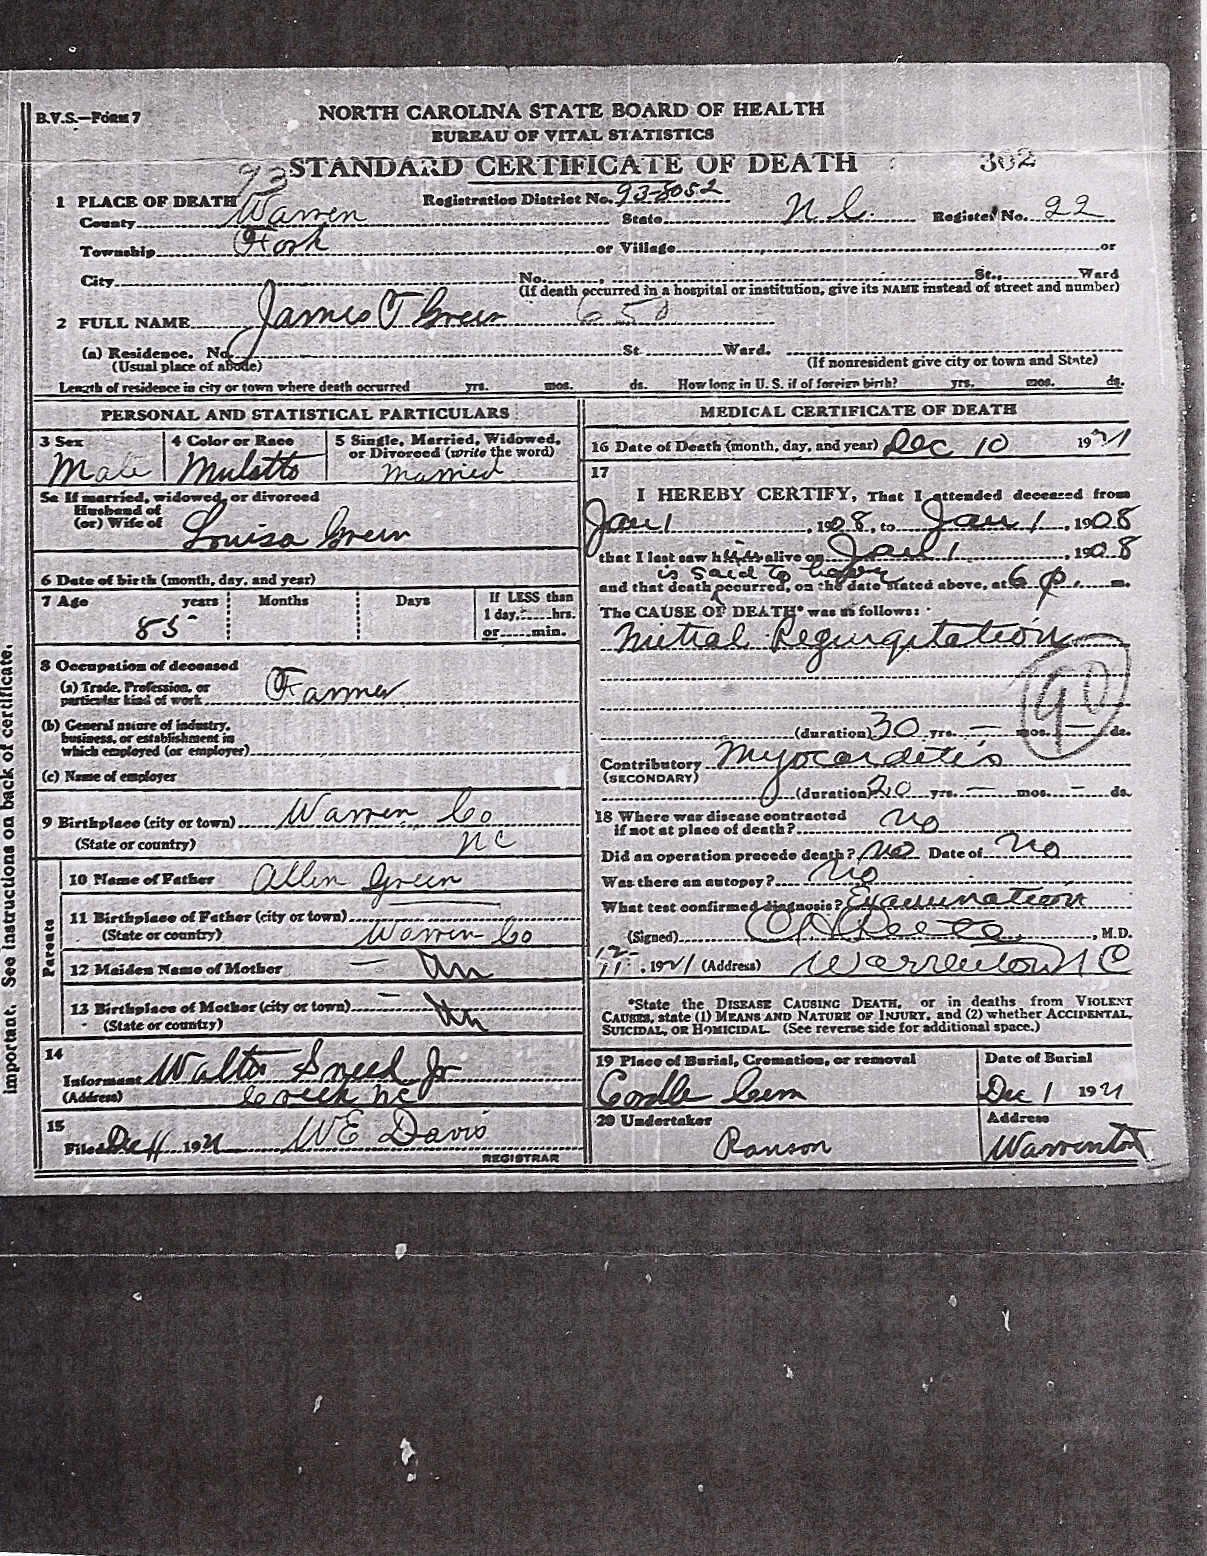 B.V.S.—Form 7
NORTH CAROLINA STATE BOARD OF HEALTH
BUREAU OF VITAL STATISTICS
STANDARD CERTIFICATE OF DEATH 302
93
1 PLACE OF DEATH Registration District No. 93-8052
County Warren State N.C. Register No. 22
Township Fork or Village or
City No. St., Ward
(If death occurred in a hospital or institution, give its NAME instead of street and number)
2 FULL NAME James T Green 650
(a) Residence. No. St. Ward.
(Usual place of abode) (If nonresident give city or town and State)
Length of residence in city or town where death occurred yrs. mos. ds. How long in U. S. if of foreign birth? yrs. mos. ds.
PERSONAL AND STATISTICAL PARTICULARS
3 Sex 4 Color or Race 5 Single, Married, Widowed,
or Divorced (write the word)
Male Mulatto Married
5a If married, widowed, or divorced
Husband of
(or) Wife of Louisa Green
6 Date of birth (month, day, and year)
7 Age years Months Days If LESS than
1 day, hrs.
or min.
85
8 Occupation of deceased
(a) Trade, Profession, or
particular kind of work Farmer
(b) General nature of industry,
business, or establishment in
which employed (or employer)
(c) Name of employer
9 Birthplace (city or town) Warren Co
(State or country) NC
Parents
10 Name of Father Allen Green
11 Birthplace of Father (city or town)
(State or country) Warren Co
12 Maiden Name of Mother —
13 Birthplace of Mother (city or town) —
(State or country)
14
Informant Walter Sneed Jr
(Address) Creek NC
15
Filed Dec 11 1921 WE Davis
REGISTRAR
important. See instructions on back of certificate.
MEDICAL CERTIFICATE OF DEATH
16 Date of Death (month, day, and year) Dec 10 1921
17
I HEREBY CERTIFY, That I attended deceased from
Jan 1, 1908, to Jan 1, 1908
that I last saw him alive on Jan 1, 1908
is said to have
and that death occurred, on the date stated above, at 6 p. m.
The CAUSE OF DEATH* was as follows:
Mitral Regurgitation
90
(duration) 30 yrs. — mos. — ds.
Contributory Myocardetis
(SECONDARY)
(duration) 20 yrs. — mos. — ds.
18 Where was disease contracted
if not at place of death? No
Did an operation precede death? No Date of No
Was there an autopsy? No
What test confirmed diagnosis? Examination
(Signed) , M.D.
12-11-, 1921 (Address) Warrenton NC
*State the DISEASE CAUSING DEATH, or in deaths from VIOLENT
CAUSES, state (1) MEANS AND NATURE OF INJURY, and (2) whether ACCIDENTAL,
SUICIDAL, OR HOMICIDAL. (See reverse side for additional space.)
19 Place of Burial, Cremation, or removal Date of Burial
Cordle Cem Dec 1 1921
20 Undertaker Address
Ranson Warrenton